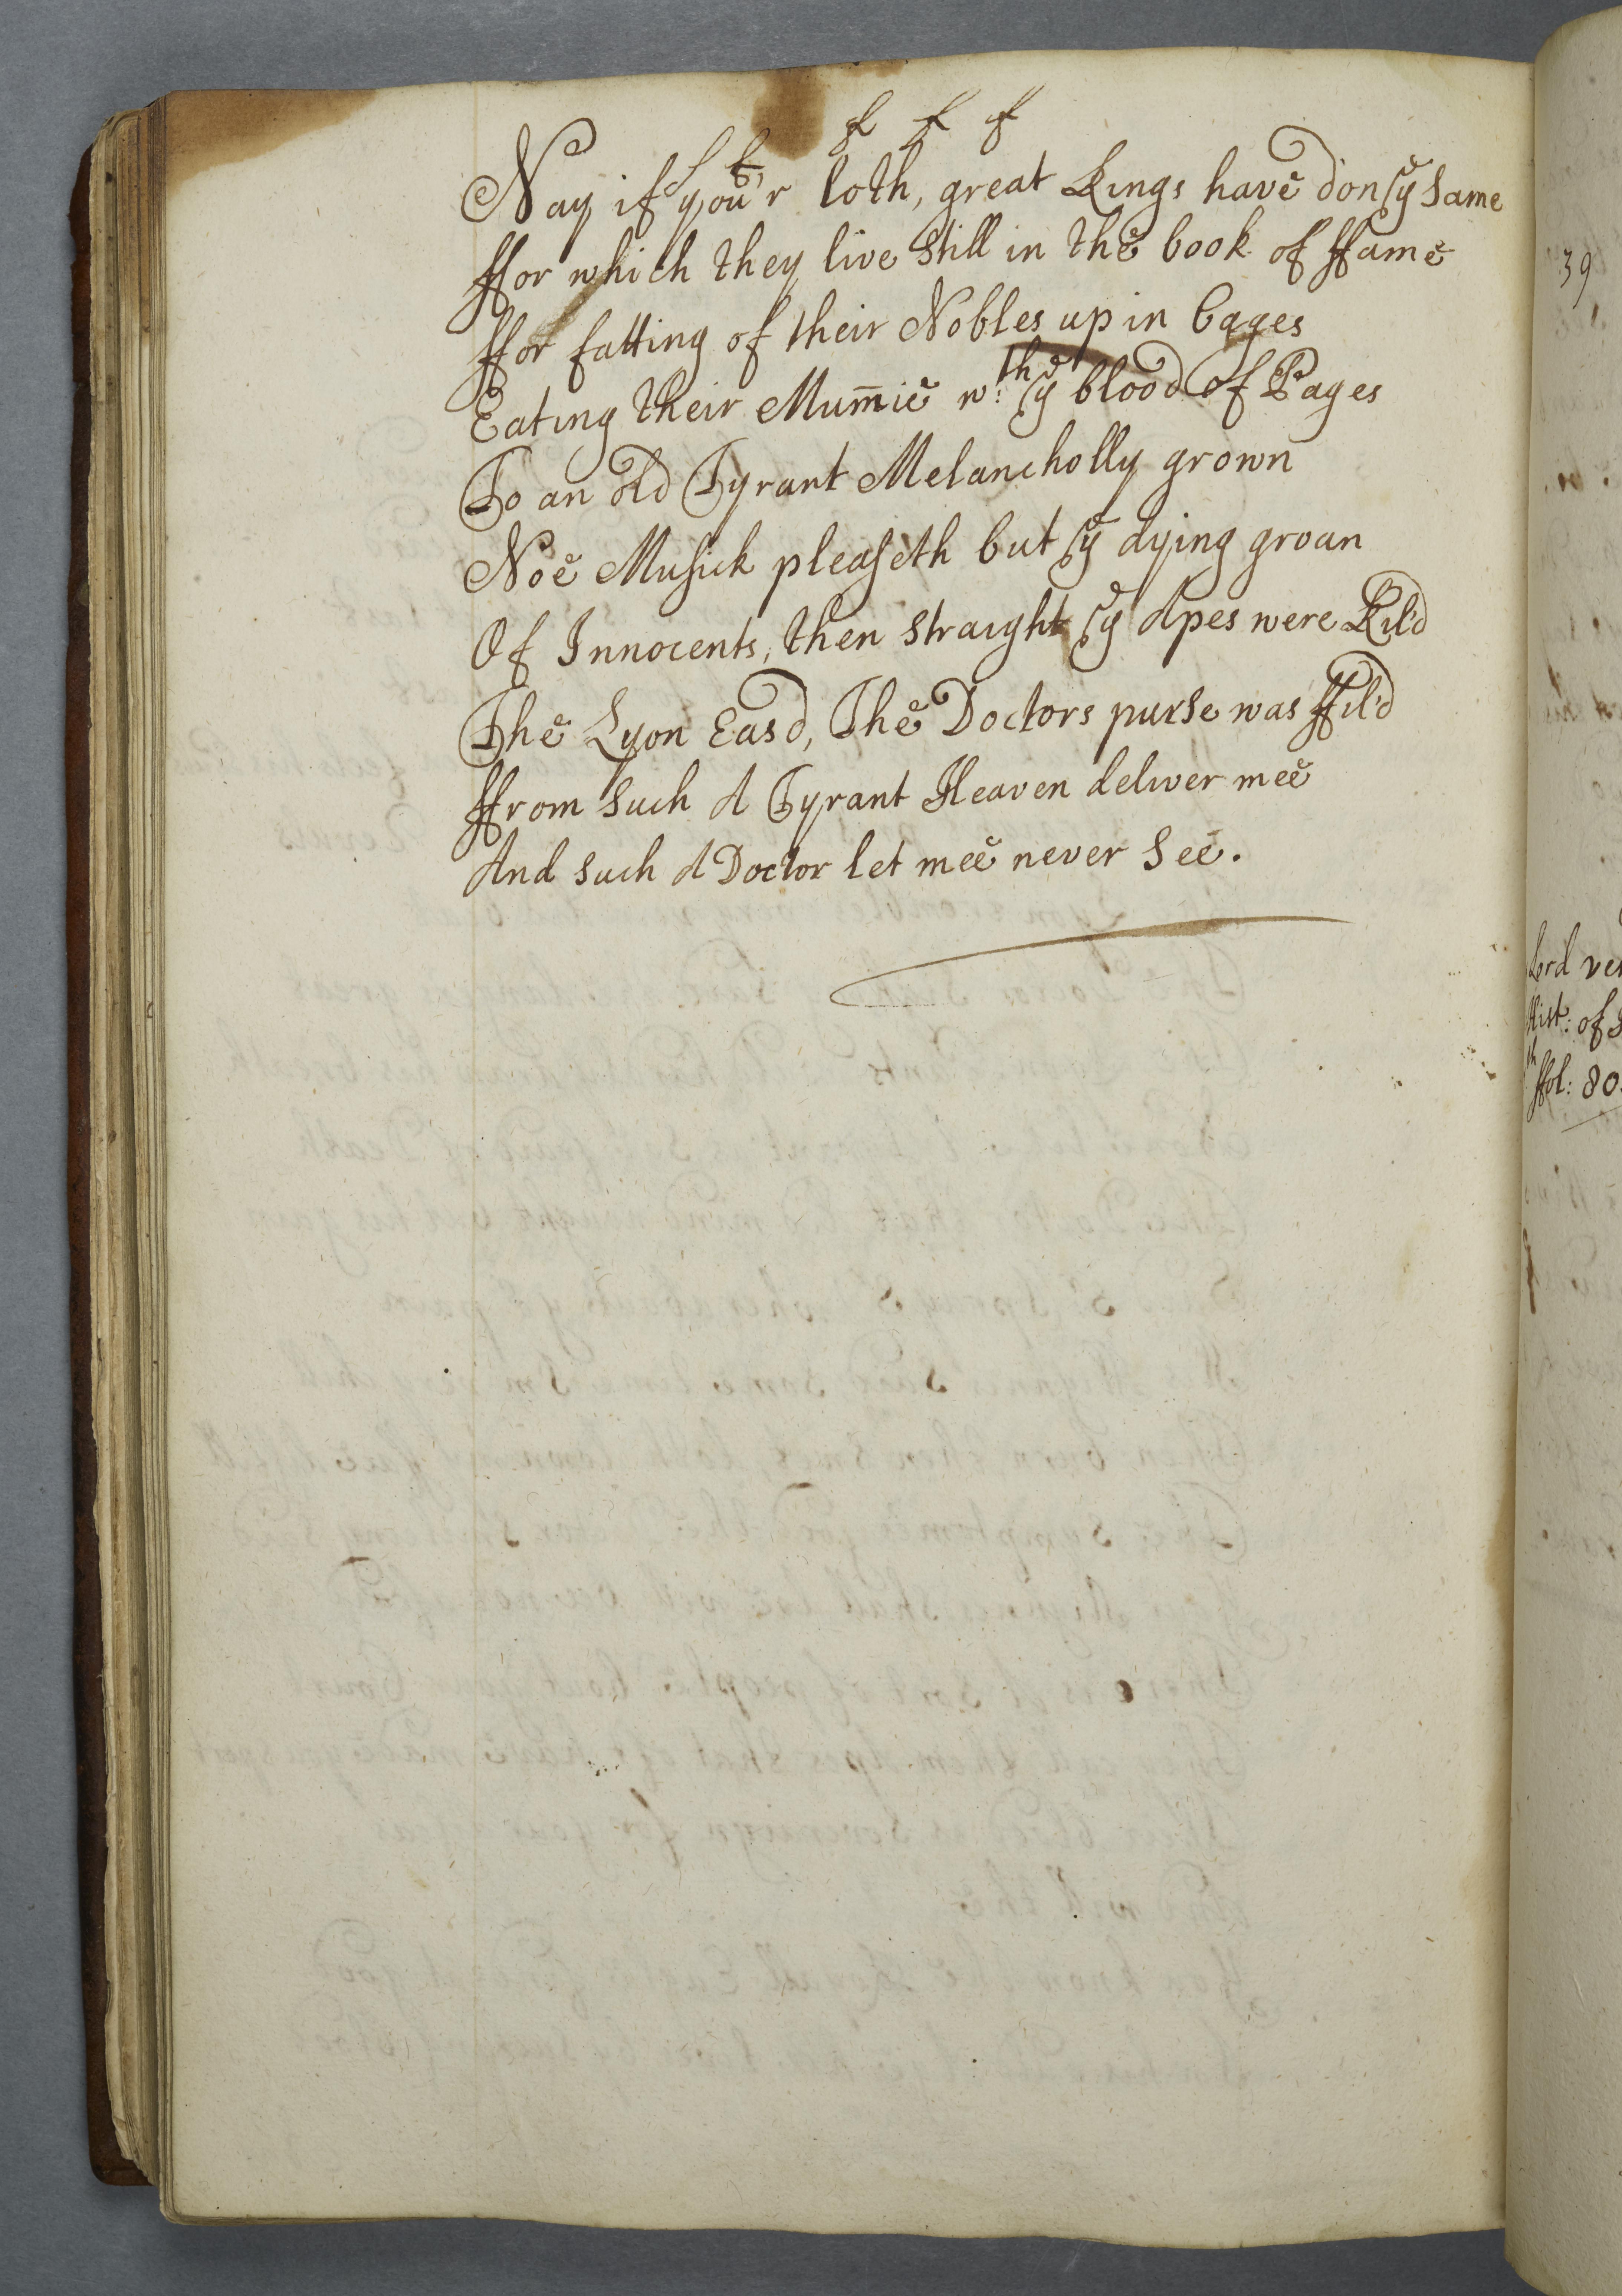 Nay if you'r loth, great Kings have don yͤ same
ffor which they live still in the book of ffame
ffor fatting of their Nobles up in Cages
Eating their Mum̄ie w:ᵗʰ yͤ blood of Pages
To an old Tyrant Melancholly grown
Noe Musick pleaseth but yͤ dying groan
Of Innocents, then straight yͤ Apes were Kil'd
The Lyon Eas'd, The Doctors purse was ffil'd
ffrom such A Tyrant Heaven deliver mee
And such A Doctor let mee never see.
39
Hist: of
ffol: 80